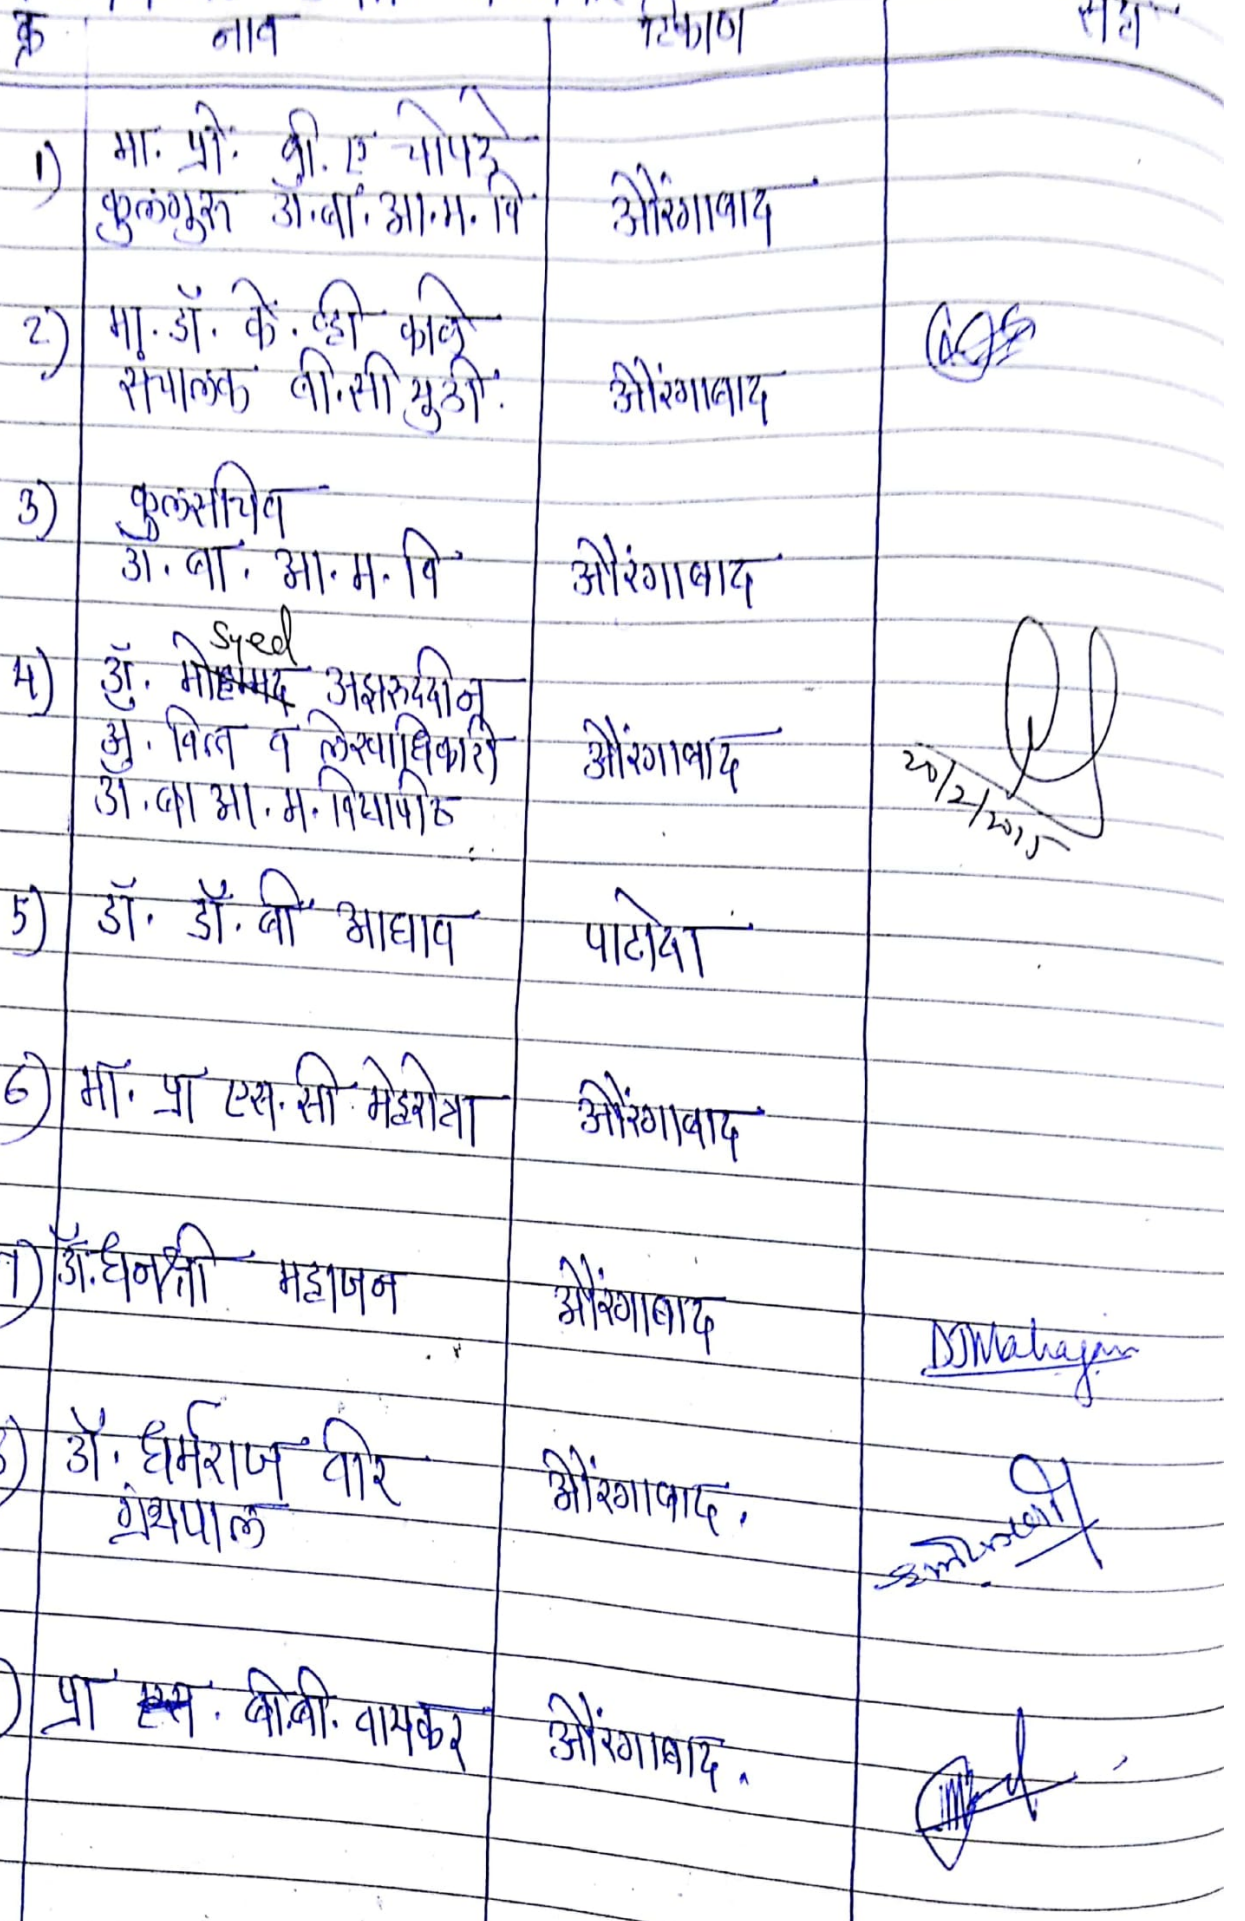 क्र नाव ठिकाण सही
1) मा. प्रो. बी. ए चोपडे
कुलगुरु डॉ. बा. आ. म. वि औरंगाबाद
2) मा. डॉ. के. व्ही काळे
संचालक बी.सी युडी. औरंगाबाद
3) कुलसचिव
डॉ. बा. आ. म. वि औरंगाबाद
Syed
4) डॉ. अझरुद्दीन
वित्त व लेखाधिकारी औरंगाबाद
डॉ. बा आ. म. विद्यापीठ
20/2/2015
5) डॉ. डॉ. बी आघाव पाटोदा
6) मा. प्रा एस. सी. मेहरोत्रा औरंगाबाद
7) डॉ. धनश्री महाजन औरंगाबाद
DJMahajan
8) डॉ. धर्मराज वीर औरंगाबाद.
ग्रंथपाल
) प्रा . बी.बी. वायकर औरंगाबाद.